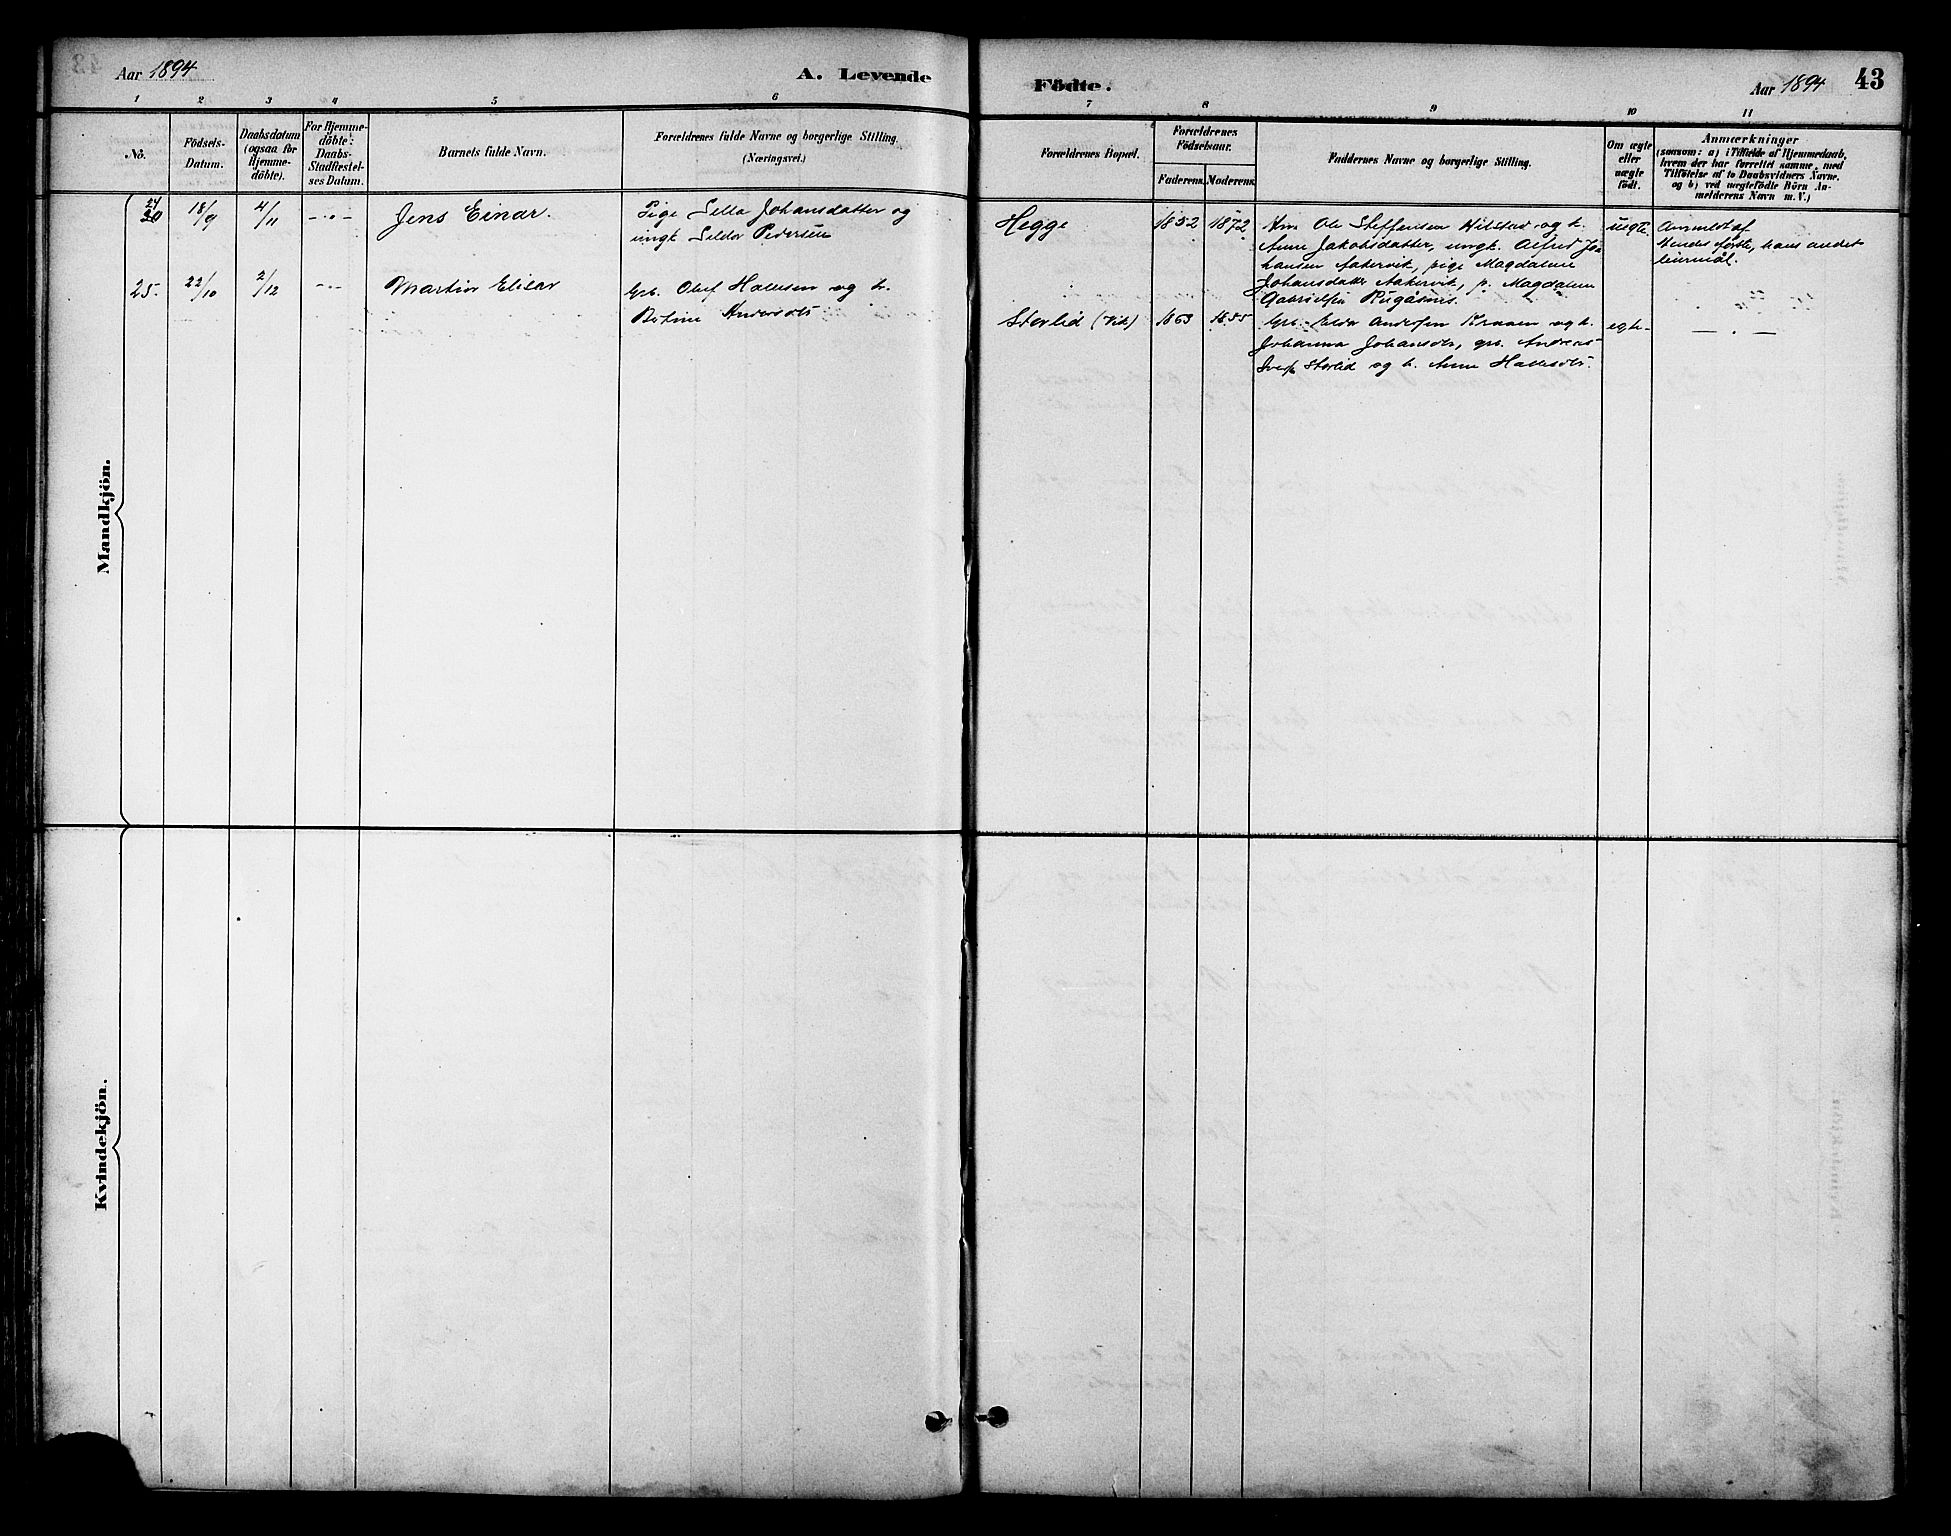 Aar 1894
A. Levende
Födte.
Aar 1894
43
1 2 3 4 5 6
7 8 9 10 11
No.
Födsels-
Datum.
Daabsdatum
(ogsaa for
Hjemme-
döbte).
For Hjemme-
döbte:
Daabs-
Stadfæstel-
ses Datum.
Barnets fulde Navn.
Forældrenes fulde Navne og borgerlige Stilling.
(Næringsvei.)
Forældrenes Bopæl.
Forældrenes
Födselsaar.
Faderens. Moderens.
Faddernes Navne og borgerlige Stilling.
Om ægte
eller
uægte
födt.
Anmærkninger
(saasom: a) i Tilfælde af Hjemmedaab,
hvem der har forrettet samme, med
Tilföielse af to Daabsvidners Navne,
og b) ved uægtefödte Börn An-
melderens Navn m. V.)
Mandkjön.
24
20
18/9
4/11
Jens Einar.
Pige Sella Johansdatter og
ungk. Peder Pedersen
Hegge
1852 1872
Km. Ole Steffensen Hilstad og h.
Anne Jakobsdatter, ungk. Alfred Jo-
hansen Aakervik, pige Magdalene
Johansdatter Aakervik, p. Magdalene
Gabrielsen
uægte.
Anmeldt af
Hendes förste, hans andet
leiermål.
25.
22/10
2/12
Martin Elisar
Grb. Oluf Hallesen og h.
Andersdtr
Storlid (Vik)
1863 1855
Grb. Andersen og h.
Johanna Johansdtr, grb. Andreas
Iversen Storlid og h. Anne Hallesdtr.
egte
Kvindekjön.